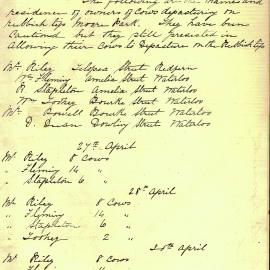 The following are the names and
residence of owners of Cows depasturing on
rubbish tips Moore Park. They have been
Cautioned but they still persisted in
allowing their Cows to Depasture on the Rubbish tips
Mr Riley Telopea Street Redfern
Wm Fleming Amelia Street Waterloo
R Stapleton Amelia Street Waterloo
Wm Tookey Bourke Street Waterloo
Mr Bowell Bourke Street Waterloo
D. Duan Dowling Street Waterloo
27th April
Mr Riley 8 Cows
" Fleming 14 "
" Stapleton 6 "
28th April
Mr Riley 8 Cows
" Fleming 14 "
" Stapleton 6 "
" Tookey 2 "
April
Mr Riley 8 Cows